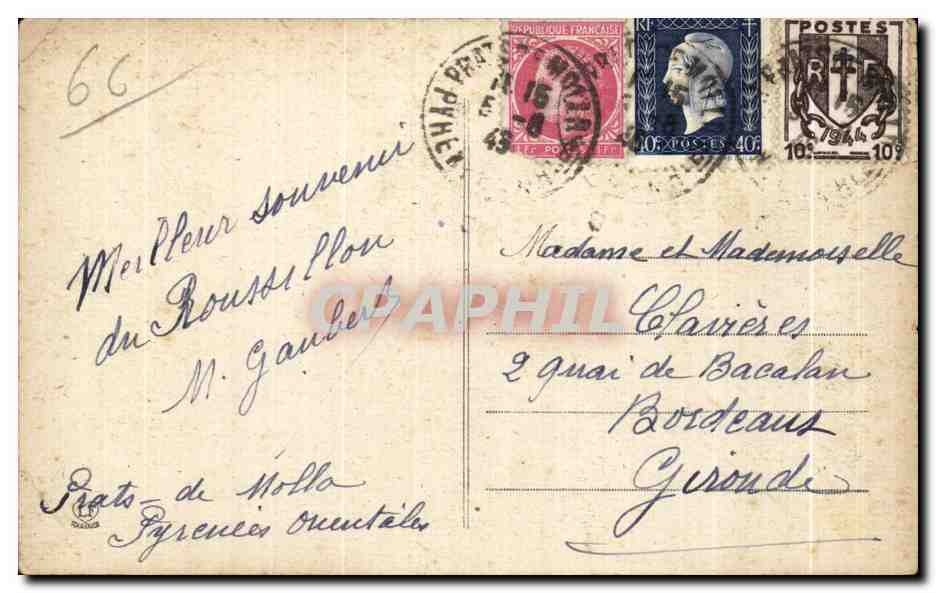 66
REPUBLIQUE FRANÇAISE
1 Fr POSTES 1 Fr
RF
40c POSTES 40c
POSTES
RF
1944
10c 10c
PRATS-DE-MOLLO
15
45
Meilleur souvenir
du Roussillon
M. Gaubert
Prats-de Mollo
Pyrenées Orientales
Madame et Mademoiselle
Clavières
2 quai de Bacalan
Bordeaux
Gironde
CPAPHIL
TOULOUSE